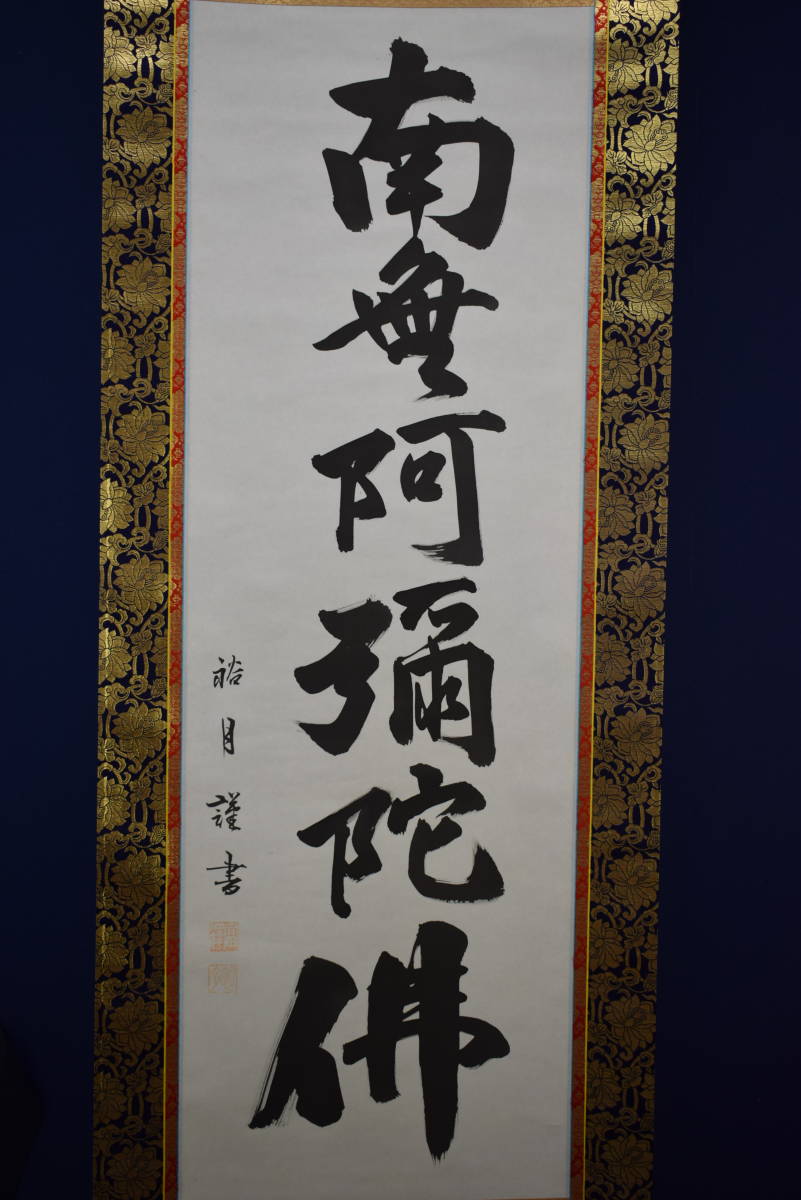 南無阿彌陀佛
裕月謹書